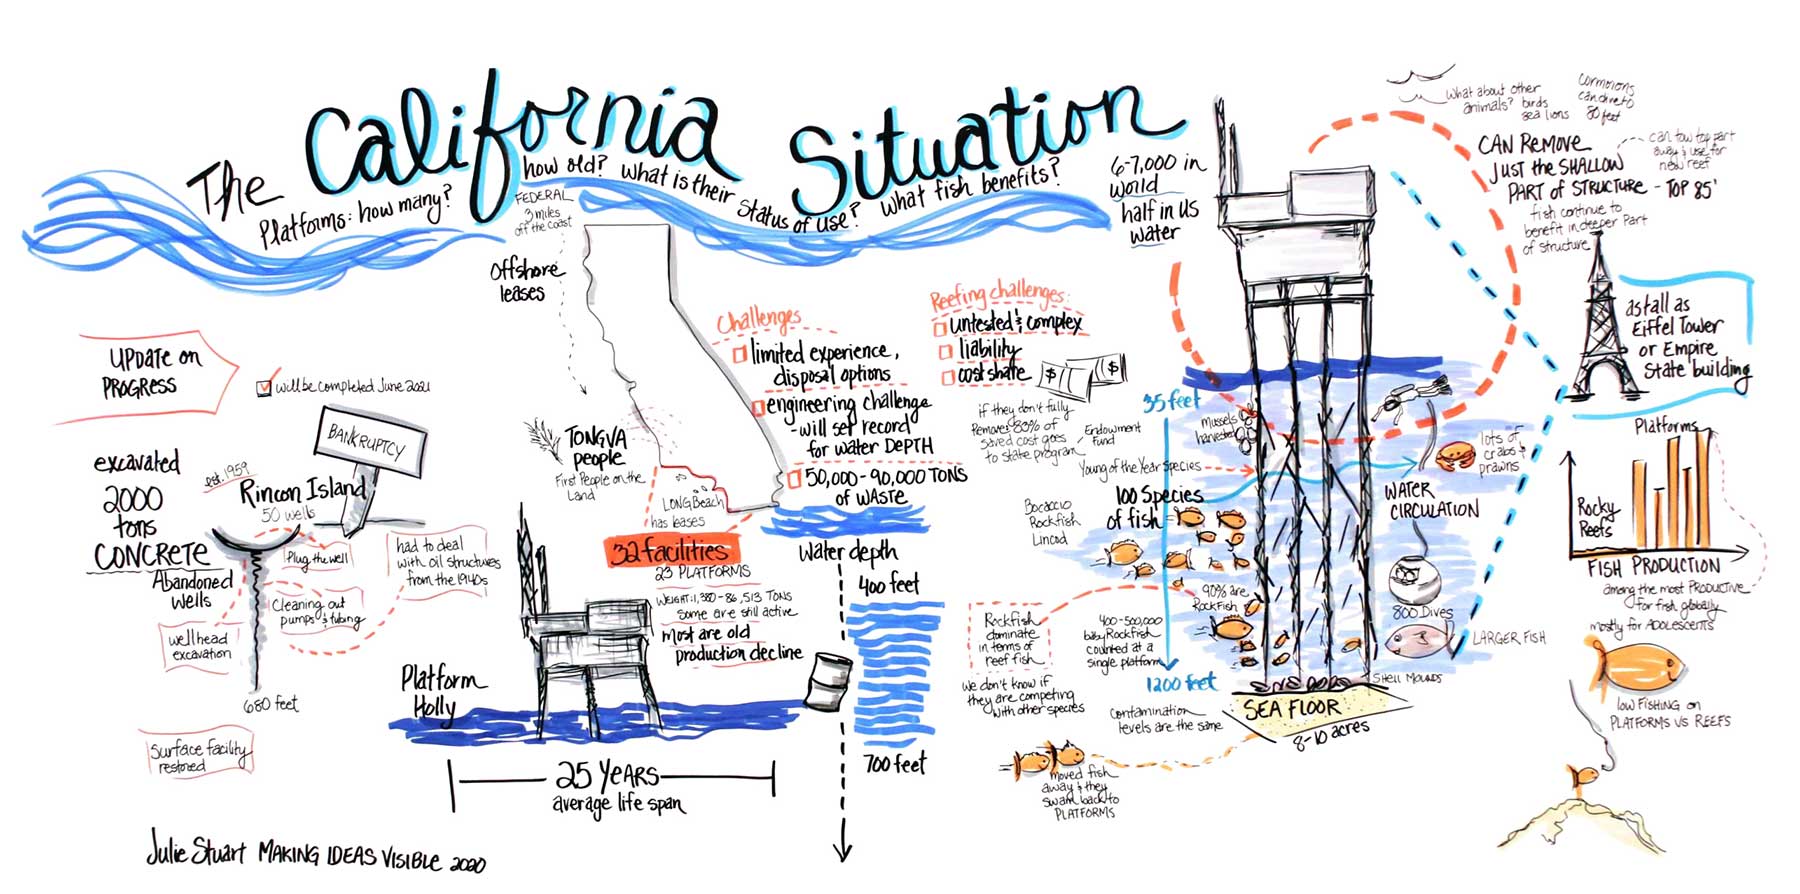 The California Situation
Platforms: how many? how old? What is their status of use? What fish benefits?
FEDERAL
3 miles
off the coast
Offshore
leases
UPDATE ON
PROGRESS
will be completed June 2021
BANKRUPTCY
excavated
2000
tons
CONCRETE
est. 1959
Rincon Island
50 wells
Abandoned
Wells
Plug the well
had to deal
with oil structures
from the 1940s
Cleaning out
pumps & tubing
wellhead
excavation
680 feet
Surface facility
restored
TONGVA
people
First People on the
Land
LONG Beach
has leases
Challenges
limited experience,
disposal options
engineering challenge
- will set record
for water DEPTH
50,000-90,000 TONS
OF WASTE
32 facilities
23 PLATFORMS
WEIGHT: 1,380-86,513 TONS
Some are still active
most are old
production decline
Platform
Holly
25 YEARS
average life span
Water depth
400 feet
700 feet
Reefing challenges:
untested & complex
liability
cost share
$ $
if they don't fully
Remove 80% of
saved cost goes
to state program
Endowment
Fund
Young of the Year Species
100 Species
of fish
Bocaccio
Rockfish
Lincod
90% are
Rockfish
Rockfish
dominate
in terms of
reef fish
400-500,000
baby Rockfish
counted at a
single platform
We don't know if
they are competing
with other species
Contamination
levels are the same
moved fish
away & they
swam back to
PLATFORMS
6-7,000 in
world
half in US
water
35 feet
1200 feet
Mussels
harvested
lots of
crabs &
prawns
WATER
CIRCULATION
800 Dives
LARGER FISH
SHELL MOUNDS
SEA FLOOR
8-10 acres
What about other
animals? birds
sea lions
80 feet
CAN REMOVE
JUST THE SHALLOW
PART OF STRUCTURE - TOP 85'
can tow top part
away & use for
new reef
fish continue to
benefit in deeper Part
of structure
as tall as
Eiffel Tower
or Empire
State building
Platforms
Rocky
Reefs
FISH PRODUCTION
among the most PRODUCTIVE
for fish globally
mostly for ADOLESCENTS
LOW FISHING ON
PLATFORMS VS REEFS
Julie Stuart MAKING IDEAS VISIBLE 2020